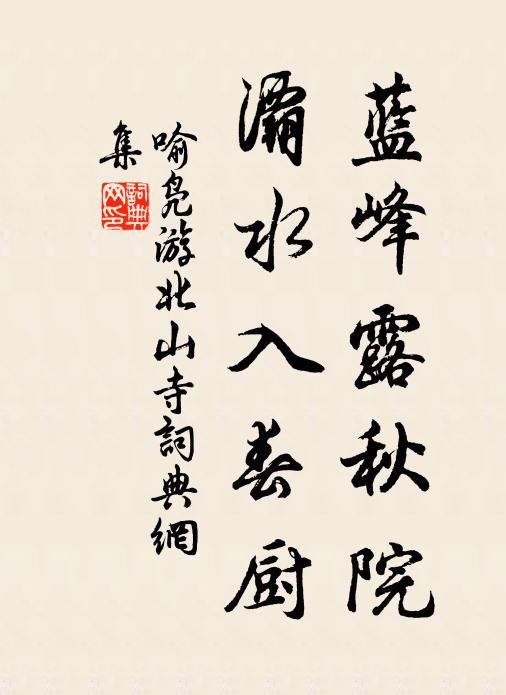 藍峰露秋院
灞水入春厨
喻凫游北山寺詞典網
集
詞典
网印